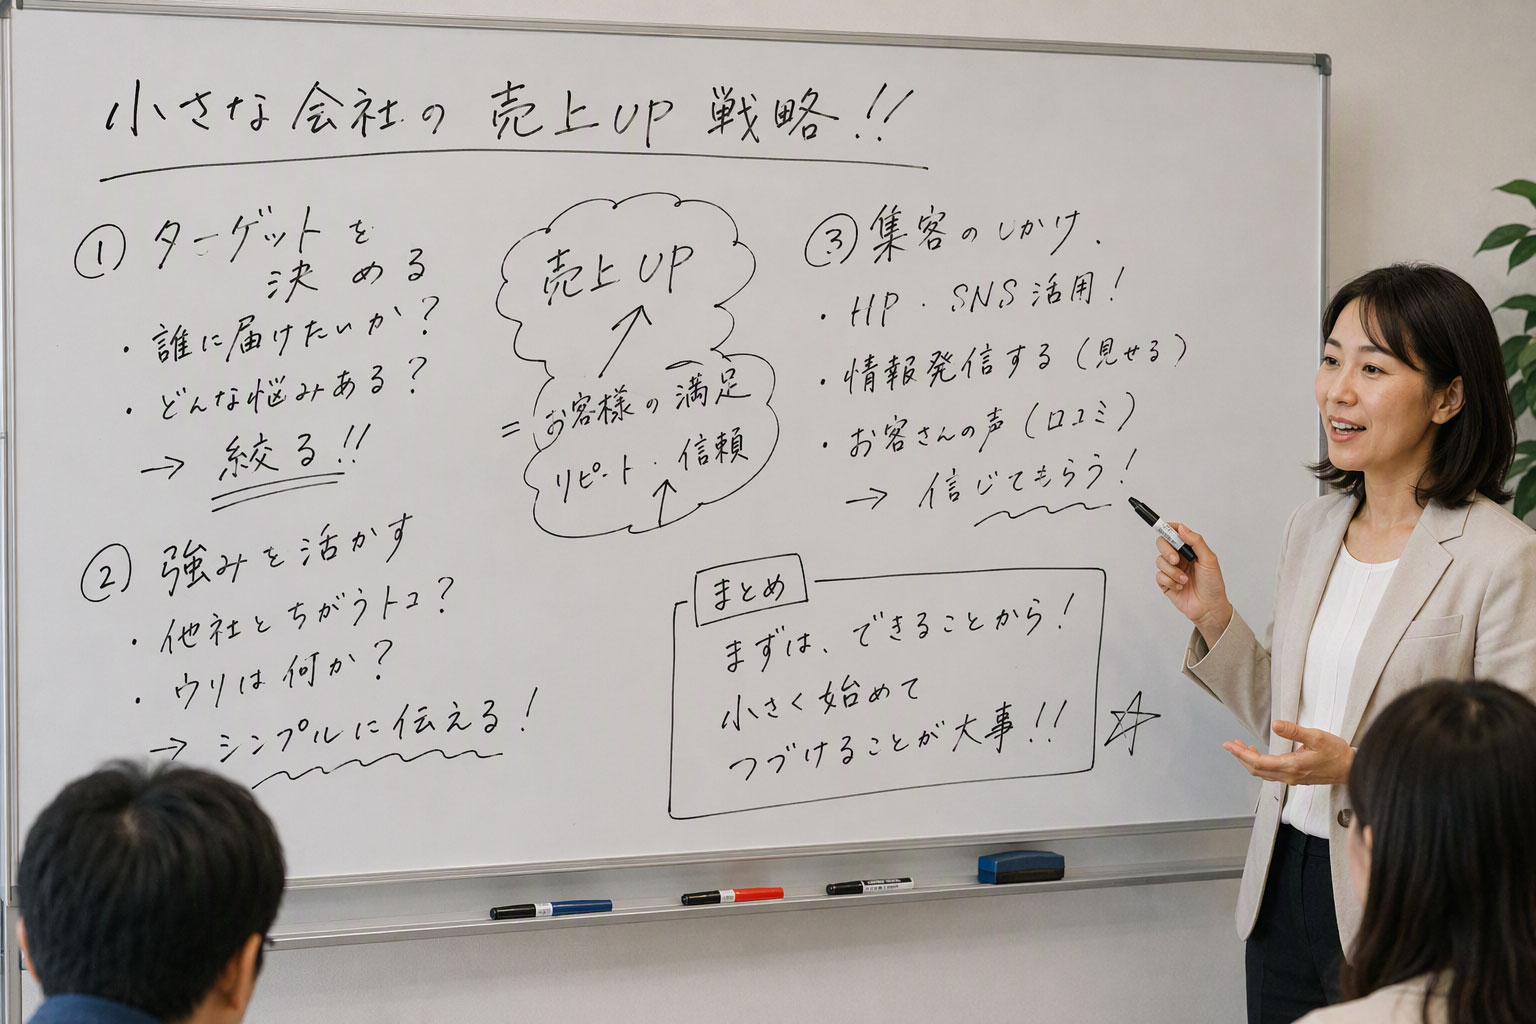 小さな会社の売上UP戦略!!
① ターゲットを
決める
・誰に届けたいか?
・どんな悩みある?
→ 絞る!!
② 強みを活かす
・他社とちがうトコ?
・ウリは何か?
→ シンプルに伝える!
売上UP
= お客様の満足
リピート・信頼
③ 集客のしかけ.
・HP・SNS活用!
・情報発信する(見せる)
・お客さんの声(口コミ)
→ 信じてもらう!
まとめ
まずは、できることから!
小さく始めて
つづけることが大事!!